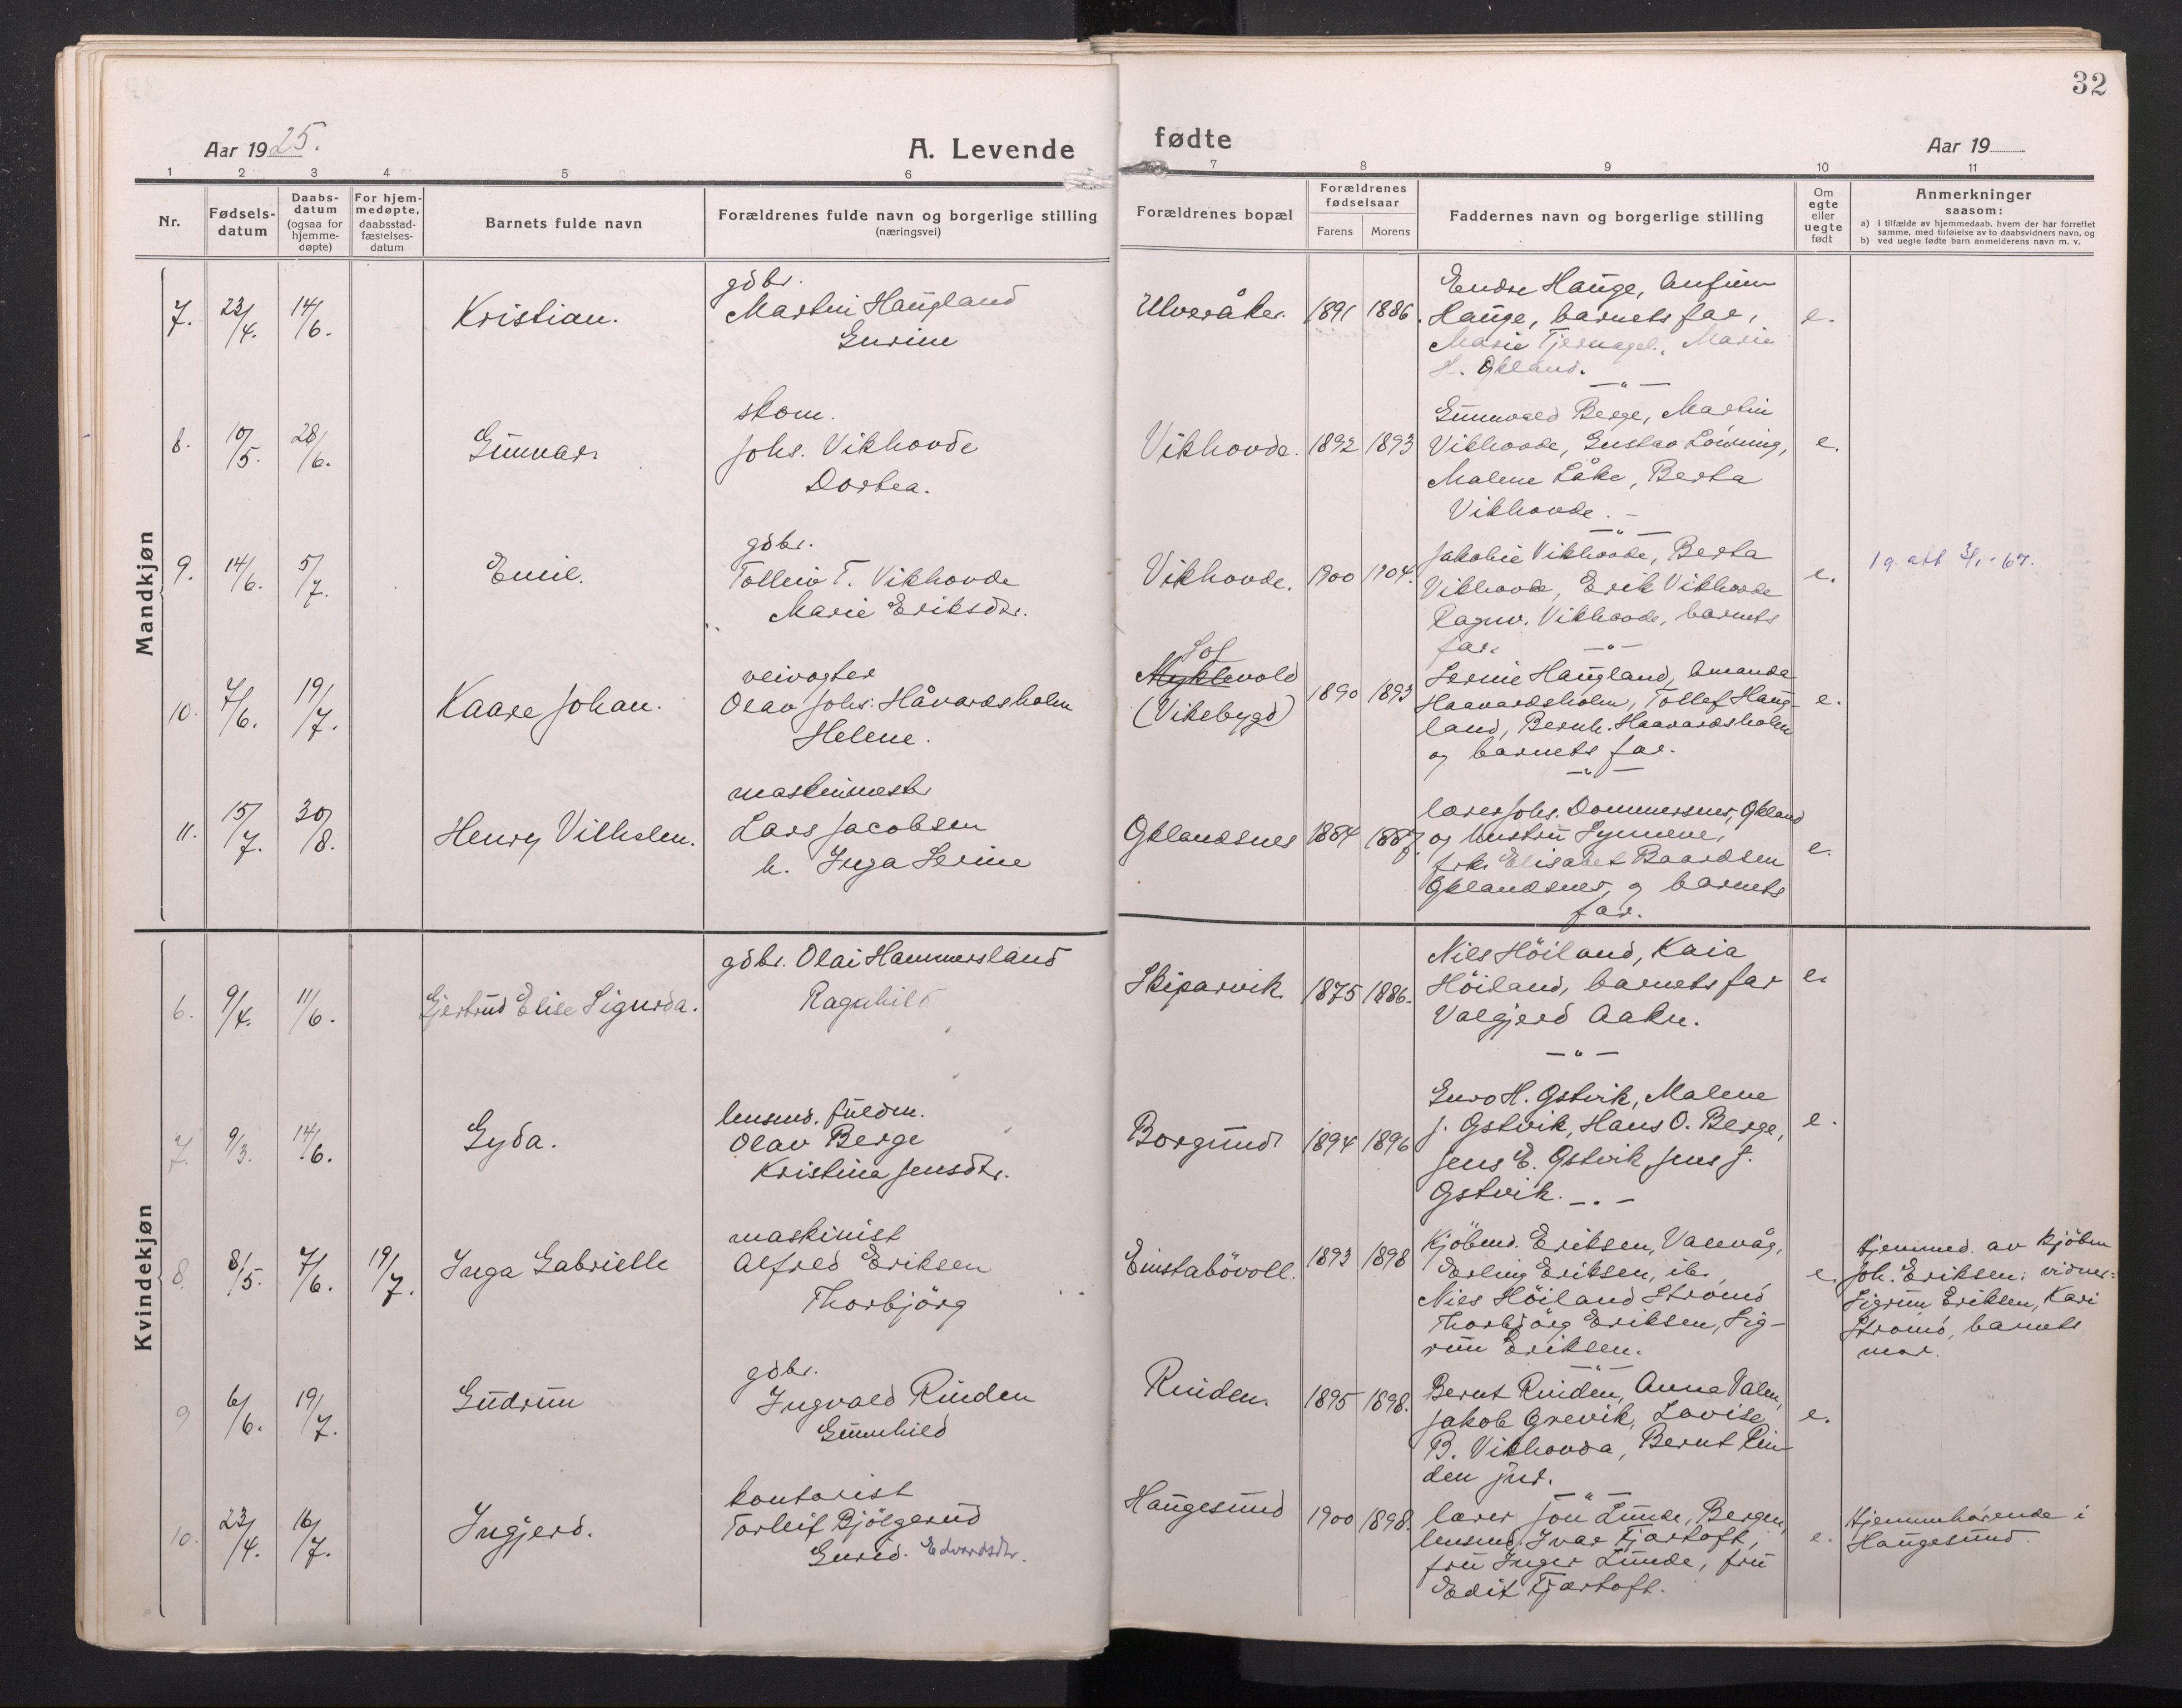 32
Aar 1925.
A. Levende
fødte
Aar 19
1 2 3 4 5 6 7 8 9 10 11
Nr.
Fødsels-
datum
Daabs-
datum
(ogsaa for
hjemme-
døpte)
For hjem-
medøpte,
daabsstad-
fæstelses-
datum
Barnets fulde navn
Forældrenes fulde navn og borgerlige stilling
(næringsvei)
Forældrenes bopæl
Forældrenes
fødselsaar
Farens Morens
Faddernes navn og borgerlige stilling
Om
egte
eller
uegte
født
Anmerkninger
saasom:
a) i tilfælde av hjemmedaab, hvem der har forrettet
samme, med tilføielse av to daabsvidners navn, og
b) ved uegte fødte barn anmelderens navn m. v.
Mandkjøn
7. 23/4. 14/6. Kristian.
gdbr.
Martin Haugland
Gurine
Ulveråker. 1891 1886.
Endre Hauge, Anfinn
Hauge, barnets far,
Marie Tjernagel, Marie
H. Økland.
e.
8. 10/5. 28/6. Gunnar
skom.
Johs. Vikhovde
Dortea.
Vikhovde. 1892 1893
Gunnvald Berge, Martin
Vikhovde, Gustav Lönning,
Malene Låke, Berta
Vikhovde.
e.
9. 14/6. 5/7. Emil.
gdbr.
Tolleiv T. Vikhovde
Marie Eriksdtr.
Vikhovde. 1900 1904.
Jakobie Vikhovde, Berta
Vikhovde, Erik Vikhovde
Ragnv. Vikhovde, barnets
far.
e.
10. 7/6. 19/7. Kaare Johan.
veivogter
Olav Johs. Håvardsholm
Helene.
Myklevold
(Vikebygd)
1890 1893
Serine Haugland, Amanda
Haavardsholm, Tollef Haug-
land, Bernh. Haavardsholm
og barnets far.
e.
11. 15/7. 30/8. Henry Vilhelm.
maskinmestr
Lars Jacobsen
h. Inga Serine
Øklandsnes 1884 1887.
lærer Johs. Dommersnes, Økland
og hustru Synneve,
frk. Elisabet Baardsen
Øklandsnes, og barnets
far.
e.
Kvindekjøn
6. 9/4. 11/6. Gjertrud Elise Sigurda.
gdbr. Olai Hammersland
Ragnhild
Skiparvik. 1875 1886.
Nils Höiland, Kaia
Höiland, barnets far
Valgjerd Aakre.
e.
7. 9/3. 14/6. Gyda.
lensmd. fuldm.
Olav Berge
Kristina Jensdtr.
Borgund 1894 1896
Guro H. Østvik, Malene
J. Østvik, Hans O. Berge,
Jens E. Østvik, Jens J.
Østvik.
e.
8. 8/5. 7/6. 19/7. Inga Gabrielle
maskinist
Alfred Eriksen
Thorbjörg
Einstabövoll. 1893 1898
Kjöbmd. Eriksen, Vanvåg,
Erling Eriksen, ib.,
Nils Höiland Stromö
Thorbjörg Eriksen, Sig-
run Eriksen.
e.
Hjemmed. av kjöbm
Joh. Eriksen: vidner:
Sigrun Eriksen, Kari
Stromö, barnets
mor.
9 6/6. 19/7. Gudrun
gdbr.
Ingvald Rinden
Gunnhild
Rinden. 1895 1898.
Bernt Rinden, Anna Valen,
Jakob Grevik, Lovise
B. Vikhovda, Bernt Rin
den jnr.
e.
10. 23/4. 16/7. Ingjerd.
kontorist
Torleif Bjölgerud
Gurid. Edvardsdtr.
Haugesund 1900 1898.
lærer Jon Lunde, Bergen,
lensmd. Ivar Fjærtoft,
fru Inger Lunde, fru
Edit Fjærtoft.
e.
Hjemmhörende i
Haugesund.